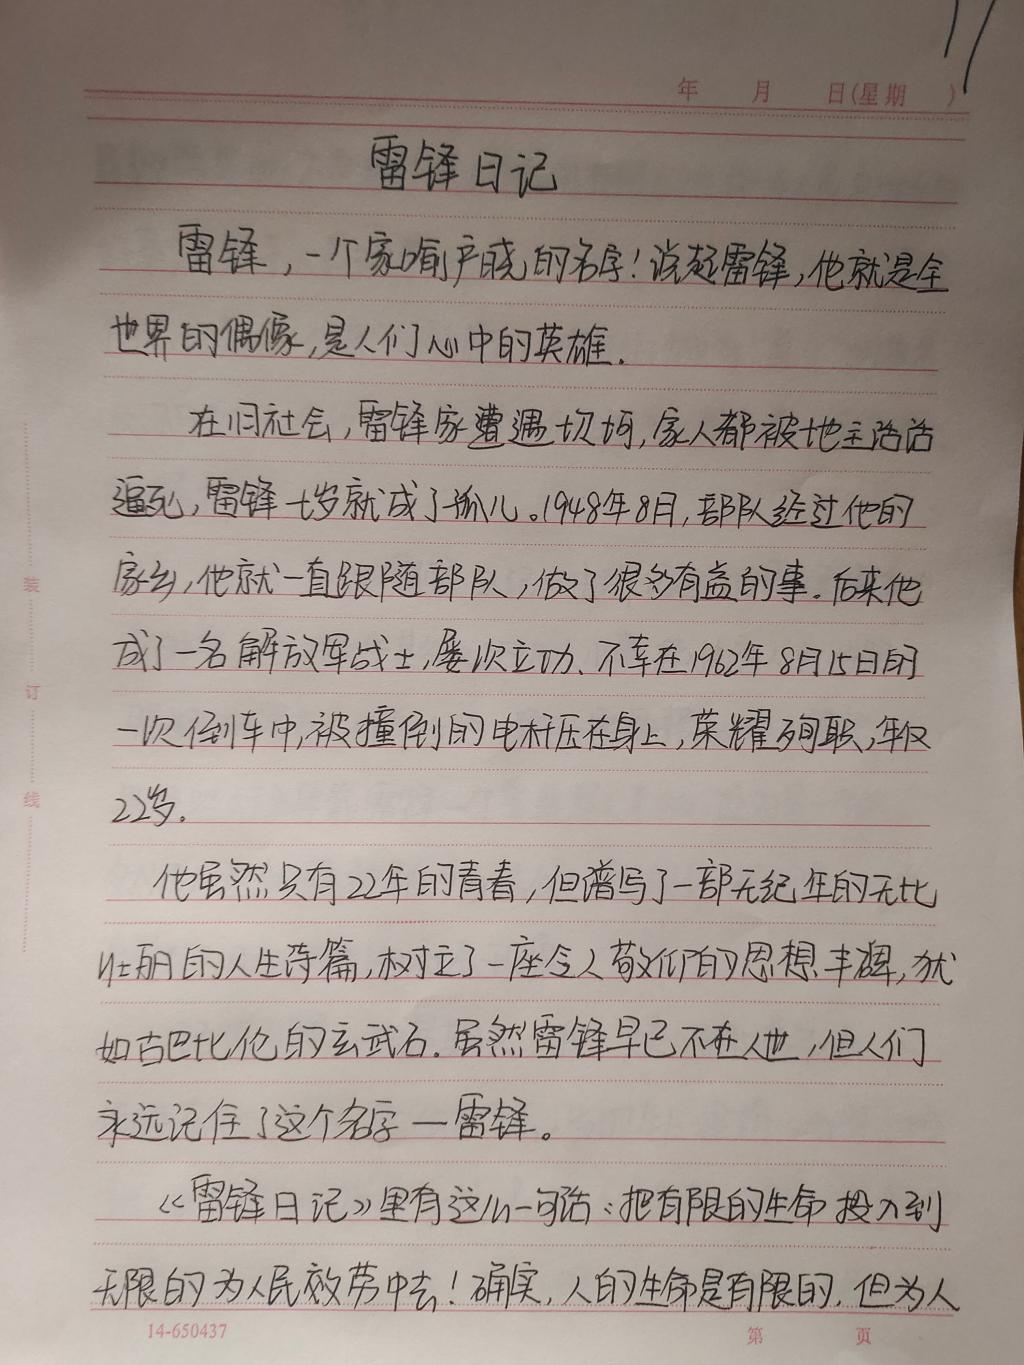 年 月 日(星期 )
雷锋日记
雷锋，一个家喻户晓的名字！说起雷锋，他就是全
世界的偶像，是人们心中的英雄.
在旧社会，雷锋家遭遇坎坷，家人都被地主活活
逼死，雷锋七岁就成了孤儿。1948年8月，部队经过他的
家乡，他就一直跟随部队，做了很多有益的事.后来他
成了一名解放军战士，屡次立功、不幸在1962年8月15日的
一次倒车中，被撞倒的电杆压在身上，荣耀殉职，年仅
22岁.
他虽然只有22年的青春，但谱写了一部无纪年的无比
壮丽的人生诗篇，树立了一座令人敬仰的思想丰碑，犹
如古巴比伦的玄武石.虽然雷锋早已不在人世，但人们
永远记住了这个名字一雷锋。
《雷锋日记》里有这么一句话：把有限的生命投入到
无限的为人民效劳中去！确实，人的生命是有限的，但为人
装
订
线
14-650437
第 页